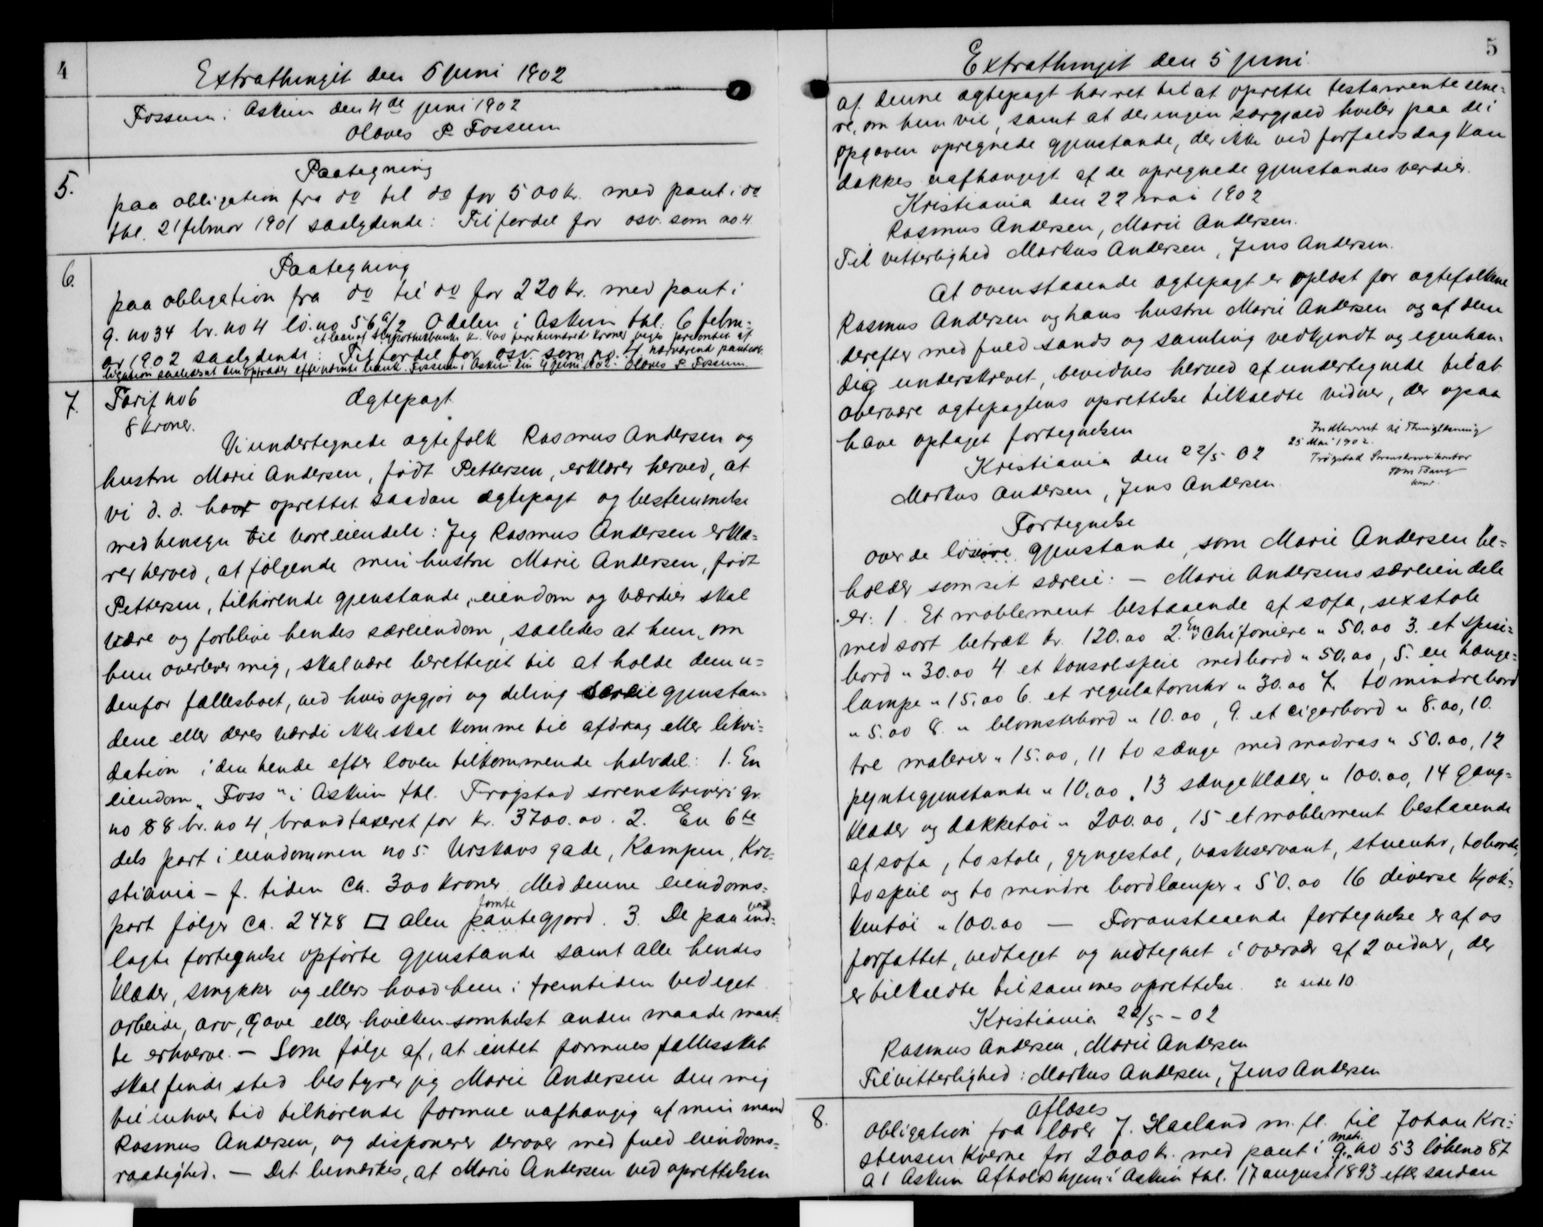 4
Extrathinget den 5 juni 1902
Fossum i Askim den 4de juni 1902
Olaves P. Fossum
5.
Paategning
paa obligation fra do til do for 500 kr. med pant i do
thl. 21 februar 1901 saalydende: Til fordel for osv. som no. 4
6.
Paategning
paa obligation fra do til do for 220 kr. med pant i
g. no 34 br. no 4 lö. no 56 a/2 Odelen i Askim thl. 6 febru-
et laan af Hypothekbanken kr. 400 firehundrede kroner viges prioritet af
ar 1902 saalydende: Til fordel for osv. som no. 4 nærværend panteob-
ligation saaledes at den oprader efter nævnte bank. Fossum i Askim den 4 juni 1902. Olaves P. Fossum
7.
Tarif no 6 Ægtepagt
8 kroner.
Vi undertegnede ægtefolk Rasmus Andersen og
hustru Marie Andersen, født Pettersen, erklærer herved, at
vi d. d. har oprettet saadan ægtepagt og bestemmelse
med hensyn til vore eiendele: Jeg Rasmus Andersen erklæ-
rer herved, at følgende min hustru Marie Andersen, født
Pettersen, tilhørende gjenstande, eiendom og værdier skal
være og forblive hendes særeiendom, saaledes at hun, om
hun overlever mig, skal være berettiget til at holde dem u-
denfor fællesboet, ved hvis opgjør og deling særeiegjenstan-
dene eller deres værdi ikke skal komme til afdrag eller likvi-
dation i den hende efter loven tilkommende halvdel: 1. En
eiendom „Foss" i Askim thl. Trøgstad sorenskriveri gr.
no 88 br. no 4, brandtaxeret for kr. 3700.00. 2. En 6te
dels part i eiendommen no 5 Urstavs gade, Kampen, Kri-
stiania – f. tiden ca. 300 kroner. Med denne eiendoms-
part følger ca. 2478 □ alen tomte
pantegjord. 3. De paa ved ind-
lagte fortegnelse opførte gjenstande samt alle hendes
klæder, smykker og ellers hvad hun i fremtiden ved eget
arbeide, arv, gave eller hvilkensomhelst anden maade maat-
te erhverve. – Som følge af, at intet formuesfællesskab
skal finde sted bestyrer jeg Marie Andersen den mig
til enhver tid tilhørende formue uafhængig af min mand
Rasmus Andersen, og disponerer derover med fuld eiendoms-
raadighed. – Det bemærkes, at Marie Andersen ved oprettelsen
5
Extrathinget den 5 juni
af denne ægtepagt har ret til at oprette testamente sene-
re, om hun vil, samt at der ingen særgjæld hviler paa de i
opgaven opregnede gjenstande, der ikke ved forfaldsdag kan
dækkes uafhængigt af de opregnede gjenstandes værdier.
Kristiania den 22 mai 1902
Rasmus Andersen, Marie Andersen.
Til vitterlighed Markus Andersen, Jens Andersen.
At ovenstaaende ægtepagt er oplæst for ægtefolkene
Rasmus Andersen og hans hustru Marie Andersen og af dem
derefter med fuld sands og samling vedkjendt og egenhæn-
dig underskrevet, bevidnes herved af undertegnede til at
overvære ægtepagtens oprettelse tilkaldte vidner, der ogsaa
have optaget fortegnelsen
Kristiania den 22/5 02
Indleveret til Thinglæsning
25 Mai 1902.
Trøgstad Sorenskriverkontor
Markus Andersen, Jens Andersen
Fortegnelse
over de løsøre gjenstande, som Marie Andersen be-
holder som sit særeie: – Marie Andersens særeiendele
er: 1. Et møblement bestaaende af sofa, sex stole
med sort betræk kr. 120.00 2. En Chifoniere „ 50.00 3. et spise-
bord „ 30.00 4 et konsolspeil med bord „ 50.00, 5. en hænge-
lampe „ 15.00 6. et regulatoruhr „ 30.00 7. to mindre bord
„ 5.00 8. „ blomsterbord „ 10.00, 9. et cigarbord „ 8.00, 10.
tre malerier „ 15.00, 11 to sænge med madras „ 50.00, 12
pyntegjenstande „ 10.00, 13 sængeklæder „ 100.00, 14 gang-
klæder og dækketøi „ 200.00, 15 et møblement bestaaende
af sofa, to stole, gyngestol, vaskeservant, stueuhr, to borde,
to speil og to mindre bordlamper „ 50.00 16 diverse kjøk-
kentøi „ 100.00 — Foranstaaende fortegnelse er af os
forfattet, vedtaget og nedtegnet i overvær af 2 vidner, der
er tilkaldte til sammes oprettelse. se side 10
Kristiania 22/5 – 02
Rasmus Andersen, Marie Andersen
Til vitterlighed: Markus Andersen, Jens Andersen
8.
Aflæses
obligation fra lærer J. Haaland m. fl. til Johan Kri-
stensen Kverne for 2000 kr. med pant i matr. g. no 53 løbeno 87
a 1 Askim Afholdshjem i Askim thl. 17 august 1893 efter saadan